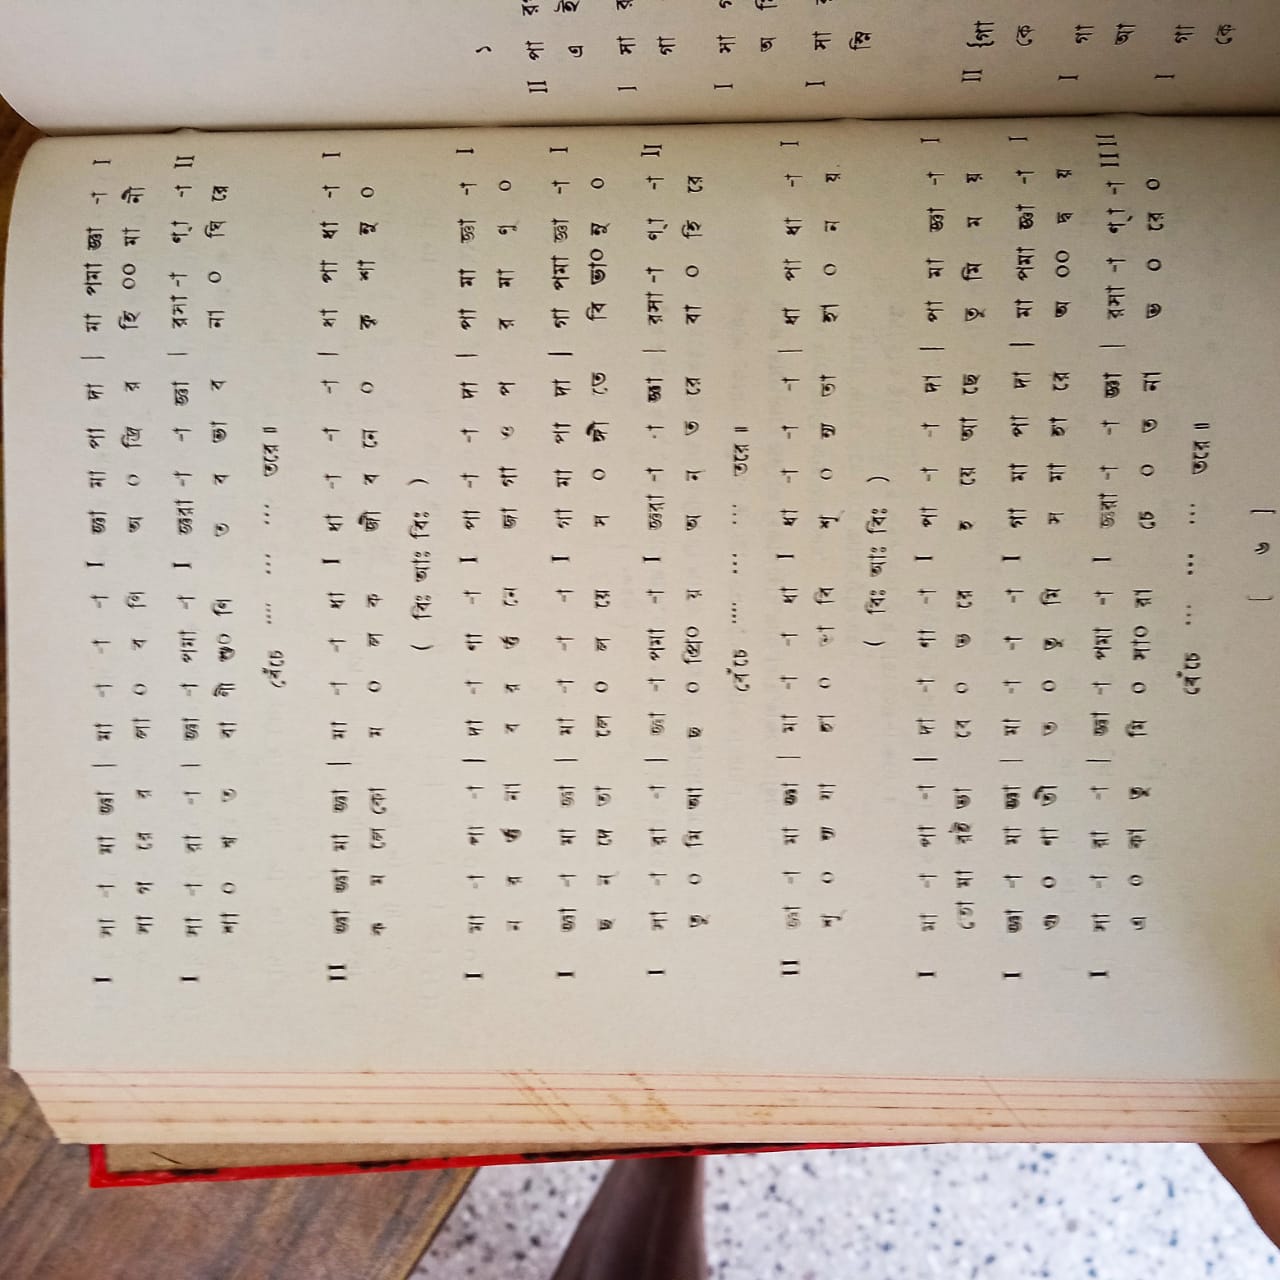 I সা -া মা জ্ঞা | মা -া -া -া I জ্ঞা মা পা দা | মা পমা জ্ঞা -া I
সা গ রে র লা ০ ব নি অ ০ জ্রি র হি ০০ মা নী
I সা -া রা -া | জ্ঞা -া পমা -া I জ্ঞরা -া -া জ্ঞা | রসা -া ণ্া -া II
শা ০ শ্ব ত বা ণী শু০ নি ত ব ভা ব না ০ ঘি রে
বেঁচে .... ... ... তরে॥
II জ্ঞা জ্ঞা মা জ্ঞা | মা -া -া ধা I ধা -া -া -া | ধা পা ধা -া I
ক ম লে কো ম ০ ল ক জী ব নে ০ কু শা নু ০
( বিঃ আঃ বিঃ )
I মা -া পা -া | দা -া ণা -া I পা -া -া দা | পা মা জ্ঞা -া I
ন র্ত্ত না ব র্ত্ত নে জা গা ও প র মা ণু ০
I জ্ঞা -া মা জ্ঞা | মা -া -া -া I গা মা পা দা | গা পমা জ্ঞা -া I
ছ ন্ দে তা লে ০ ল য়ে স ০ ঙ্গী তে বি ভা০ নু ০
I সা -া রা -া | জ্ঞা -া পমা -া I জ্ঞরা -া -া জ্ঞা | রসা -া ণ্া -া II
তু ০ মি আ ছ ০ প্রি০ য় অ ন্ ত রে বা ০ হি রে
বেঁচে .... ... ... তরে॥
II জ্ঞা -া মা জ্ঞা | মা -া -া ধা I ধা -া -া -া | ধা পা ধা -া I
শূ ০ ন্য মা হা ০ বি শূ ০ ন্য তা হা ০ ন য়
( বিঃ আঃ বিঃ )
I মা -া পা -া | দা -া ণা -া I পা -া -া দা | পা মা জ্ঞা -া I
তো মা রই ভা বে ০ ভ রে হ য়ে আ ছে তু মি ম য়
I জ্ঞা -া মা জ্ঞা | মা -া -া -া I গা মা পা দা | মা পমা জ্ঞা -া I
গু ০ ণা তী ত ০ তু মি স মা হা রে অ ০০ দ্ব য়
I সা -া রা -া | জ্ঞা -া পমা -া I জ্ঞরা -া -া জ্ঞা | রসা -া ণ্া -া II II
এ ০ কা তু মি ০ সা০ রা চে ০ ত না ভ ০ রে ০
বেঁচে ... ... ... তরে॥
[ ৬ ]